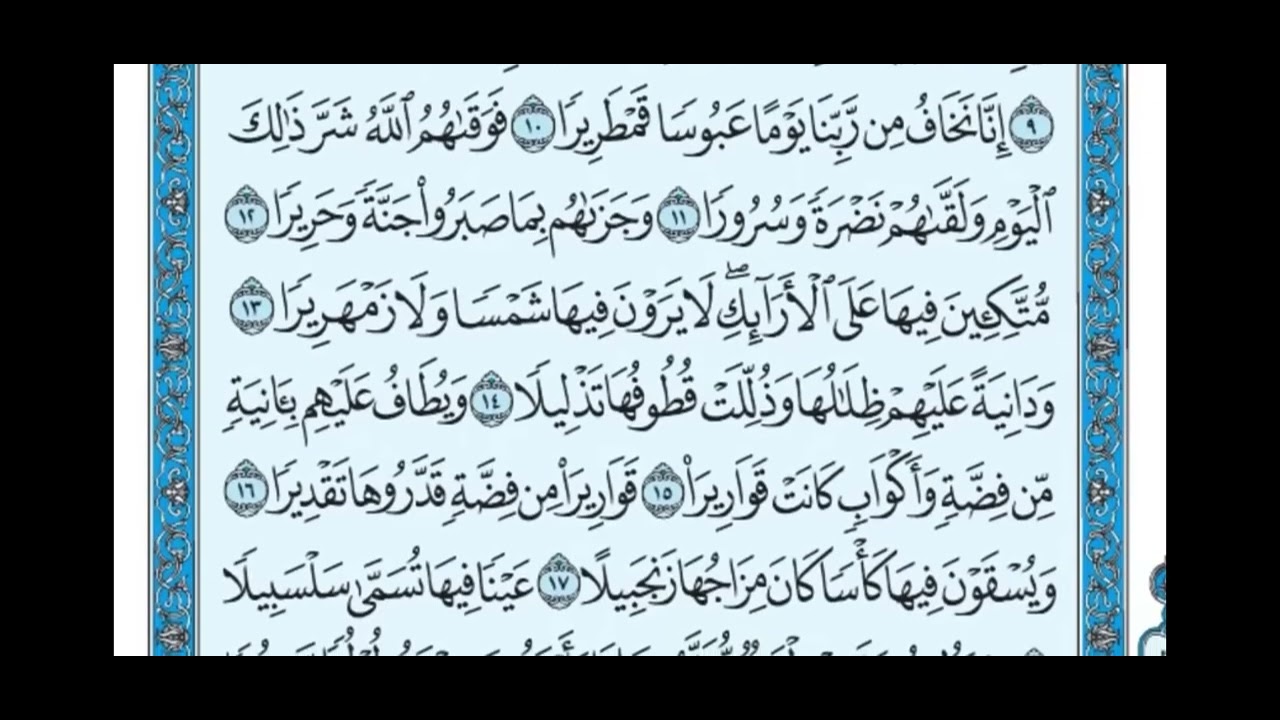 ٩ إِنَّا نَخَافُ مِن رَّبِّنَا يَوْمًا عَبُوسًا قَمْطَرِيرًا ١٠ فَوَقَىٰهُمُ ٱللَّهُ شَرَّ ذَٰلِكَ
ٱلْيَوْمِ وَلَقَّىٰهُمْ نَضْرَةً وَسُرُورًا ١١ وَجَزَىٰهُم بِمَا صَبَرُوا۟ جَنَّةً وَحَرِيرًا ١٢
مُّتَّكِـِٔينَ فِيهَا عَلَى ٱلْأَرَآئِكِ ۖ لَا يَرَوْنَ فِيهَا شَمْسًا وَلَا زَمْهَرِيرًا ١٣
وَدَانِيَةً عَلَيْهِمْ ظِلَـٰلُهَا وَذُلِّلَتْ قُطُوفُهَا تَذْلِيلًا ١٤ وَيُطَافُ عَلَيْهِم بِـَٔانِيَةٍ
مِّن فِضَّةٍ وَأَكْوَابٍ كَانَتْ قَوَارِيرَا۠ ١٥ قَوَارِيرَا۟ مِن فِضَّةٍ قَدَّرُوهَا تَقْدِيرًا ١٦
وَيُسْقَوْنَ فِيهَا كَأْسًا كَانَ مِزَاجُهَا زَنجَبِيلًا ١٧ عَيْنًا فِيهَا تُسَمَّىٰ سَلْسَبِيلًا